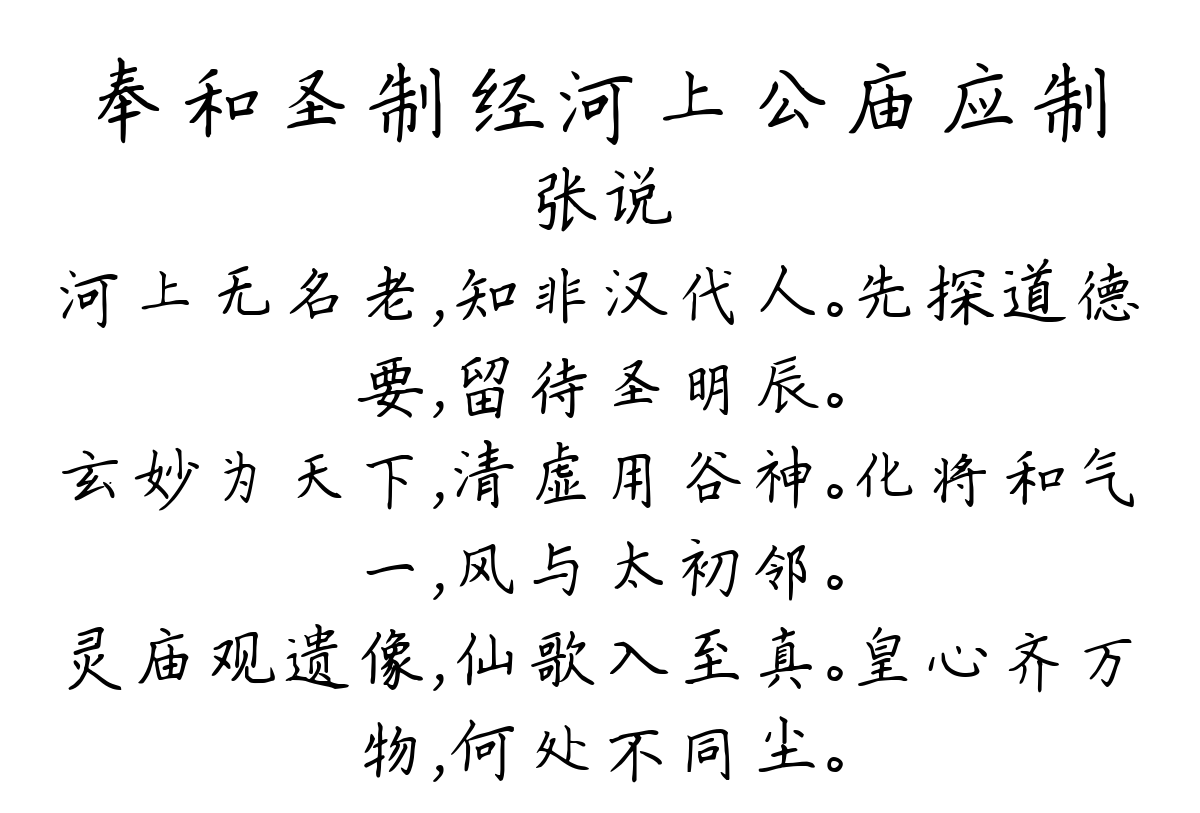 奉和圣制经河上公庙应制
张说
河上无名老,知非汉代人。先探道德
要,留待圣明辰。
玄妙为天下,清虚用谷神。化将和气
一,风与太初邻。
灵庙观遗像,仙歌入至真。皇心齐万
物,何处不同尘。